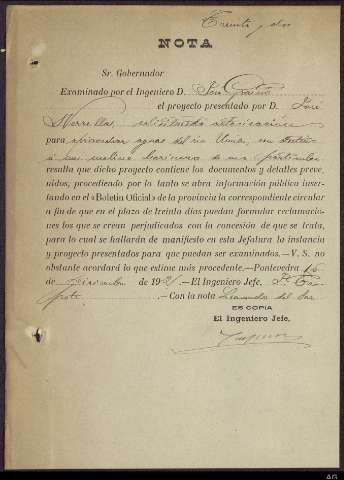 Treinta y dos
NOTA
Sr. Gobernador
Examinado por el Ingeniero D. José
el proyecto presentado por D. José
solicitando autorización
para aprovechar aguas del río Umia, con destino
a un molino harinero de uso particular
resulta que dicho proyecto contiene los documentos y detalles preve-
nidos, procediendo por lo tanto se abra información pública inser-
tando en el «Boletín Oficial» de la provincia la correspondiente circular
a fin de que en el plazo de treinta días puedan formular reclamacio-
nes los que se crean perjudicados con la concesión de que se trata,
para lo cual se hallarán de manifiesto en esta Jefatura la instancia
y proyecto presentados para que puedan ser examinados.—V. S. no
obstante acordará lo que estime más procedente.—Pontevedra
de de 192 .—El Ingeniero Jefe,
.—Con la nota
ES COPIA
El Ingeniero Jefe,